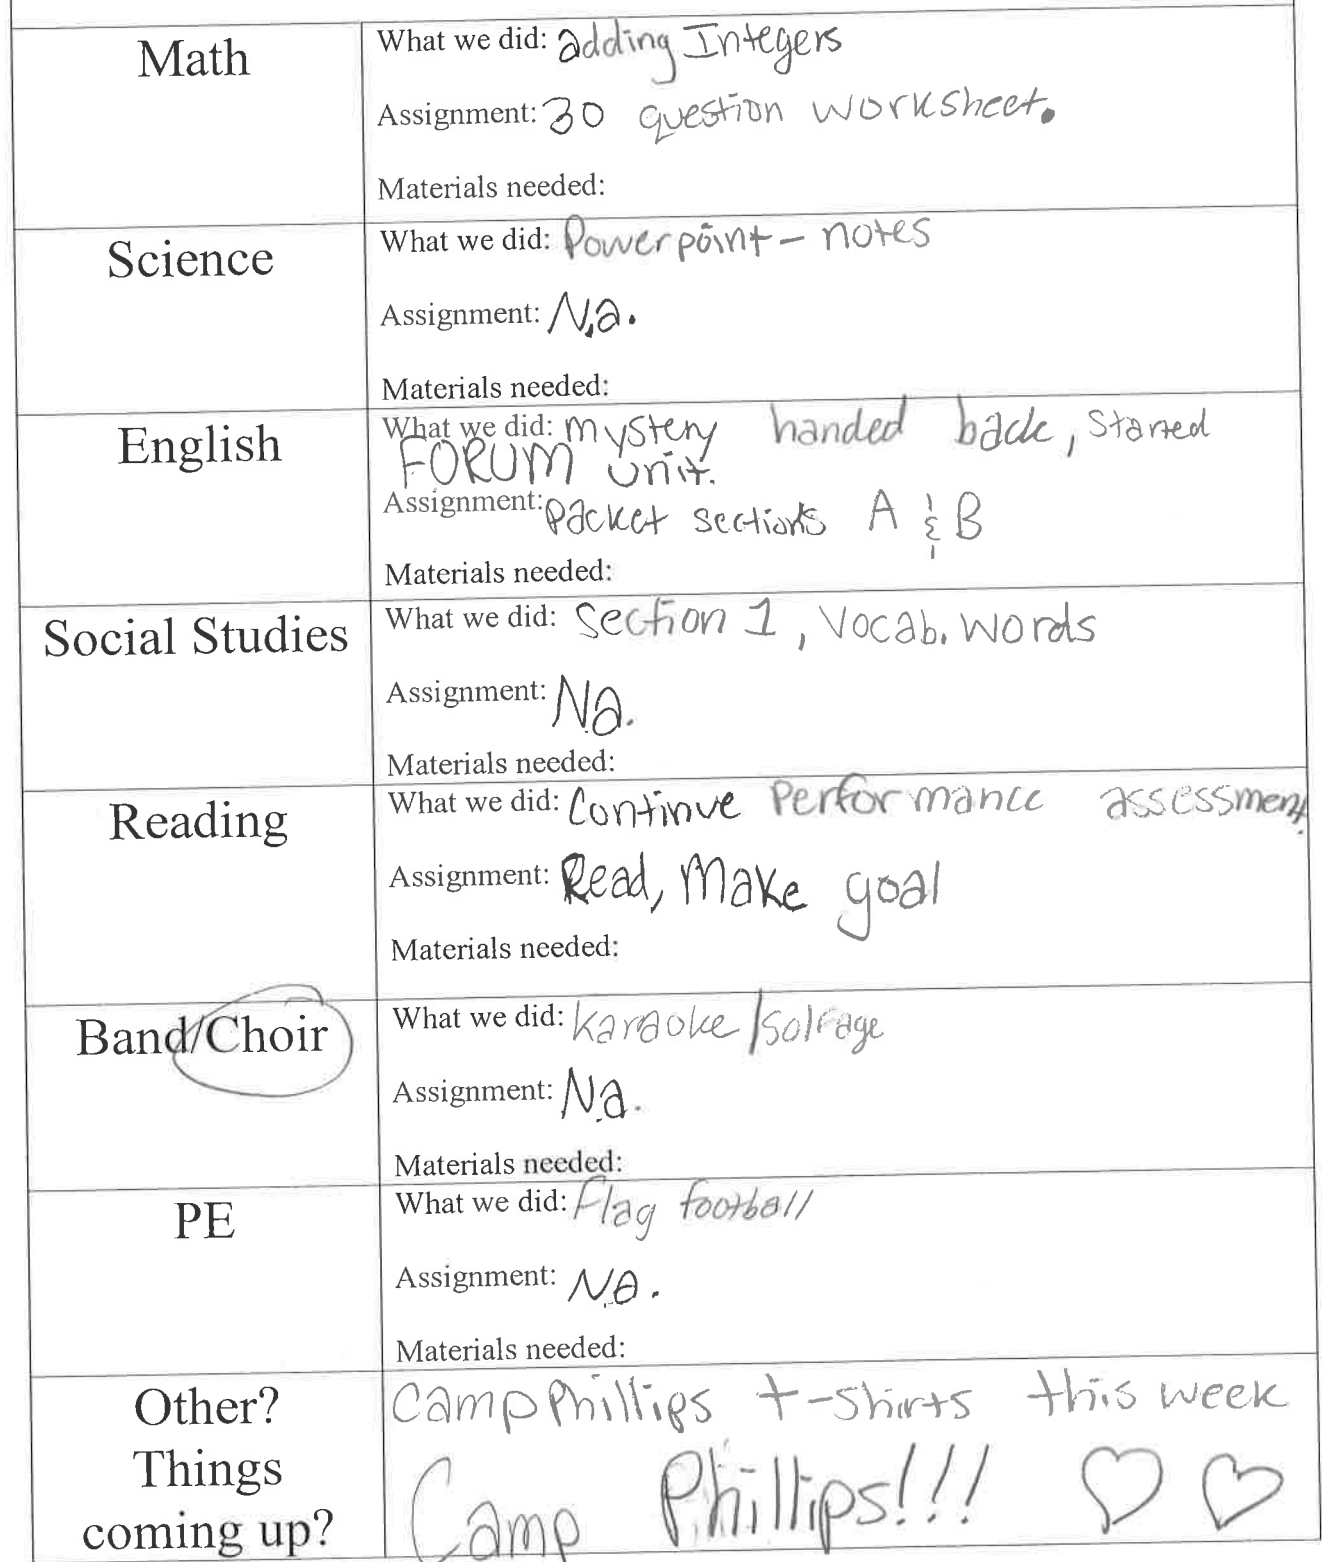 Math
What we did: adding Integers
Assignment: 30 question worksheet.
Materials needed:
Science
What we did: Powerpoint - notes
Assignment: N,a.
Materials needed:
English
What we did: mystery handed back, Started
FORUM unit.
Assignment: packet sections A & B
Materials needed:
Social Studies
What we did: Section 1, Vocab. words
Assignment: Na.
Materials needed:
Reading
What we did: Continue Performance assessment.
Assignment: Read, Make goal
Materials needed:
Band/Choir
What we did: karaoke/solfage
Assignment: N.a.
Materials needed:
PE
What we did: Flag football
Assignment: N.a.
Materials needed:
Other?
Things
coming up?
Camp Phillips t-shirts this week
Camp Phillips!!! ♡ ♡